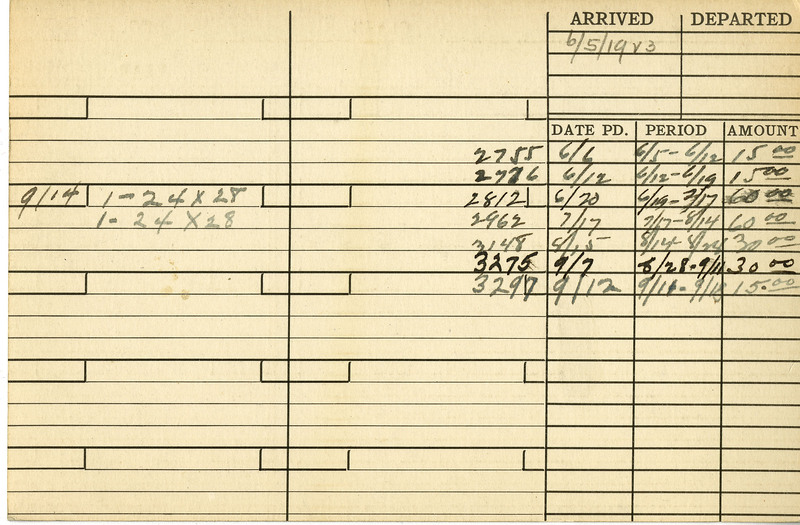 ARRIVED DEPARTED
6/5/19
DATE PD. PERIOD AMOUNT
2755 6/6 6/5-6/12 15 00
2776 6/12 6/12-6/19 15 00
9/14 1-24 X 28 2812 6/20 6/19-7/17 60 00
1-24 X 28 2962 7/17 7/17-8/14 60 00
3148 8/15 8/14- 30 00
3275 9/7 8/28-9/11 30 00
3297 9/12 9/11-9/18 15.00